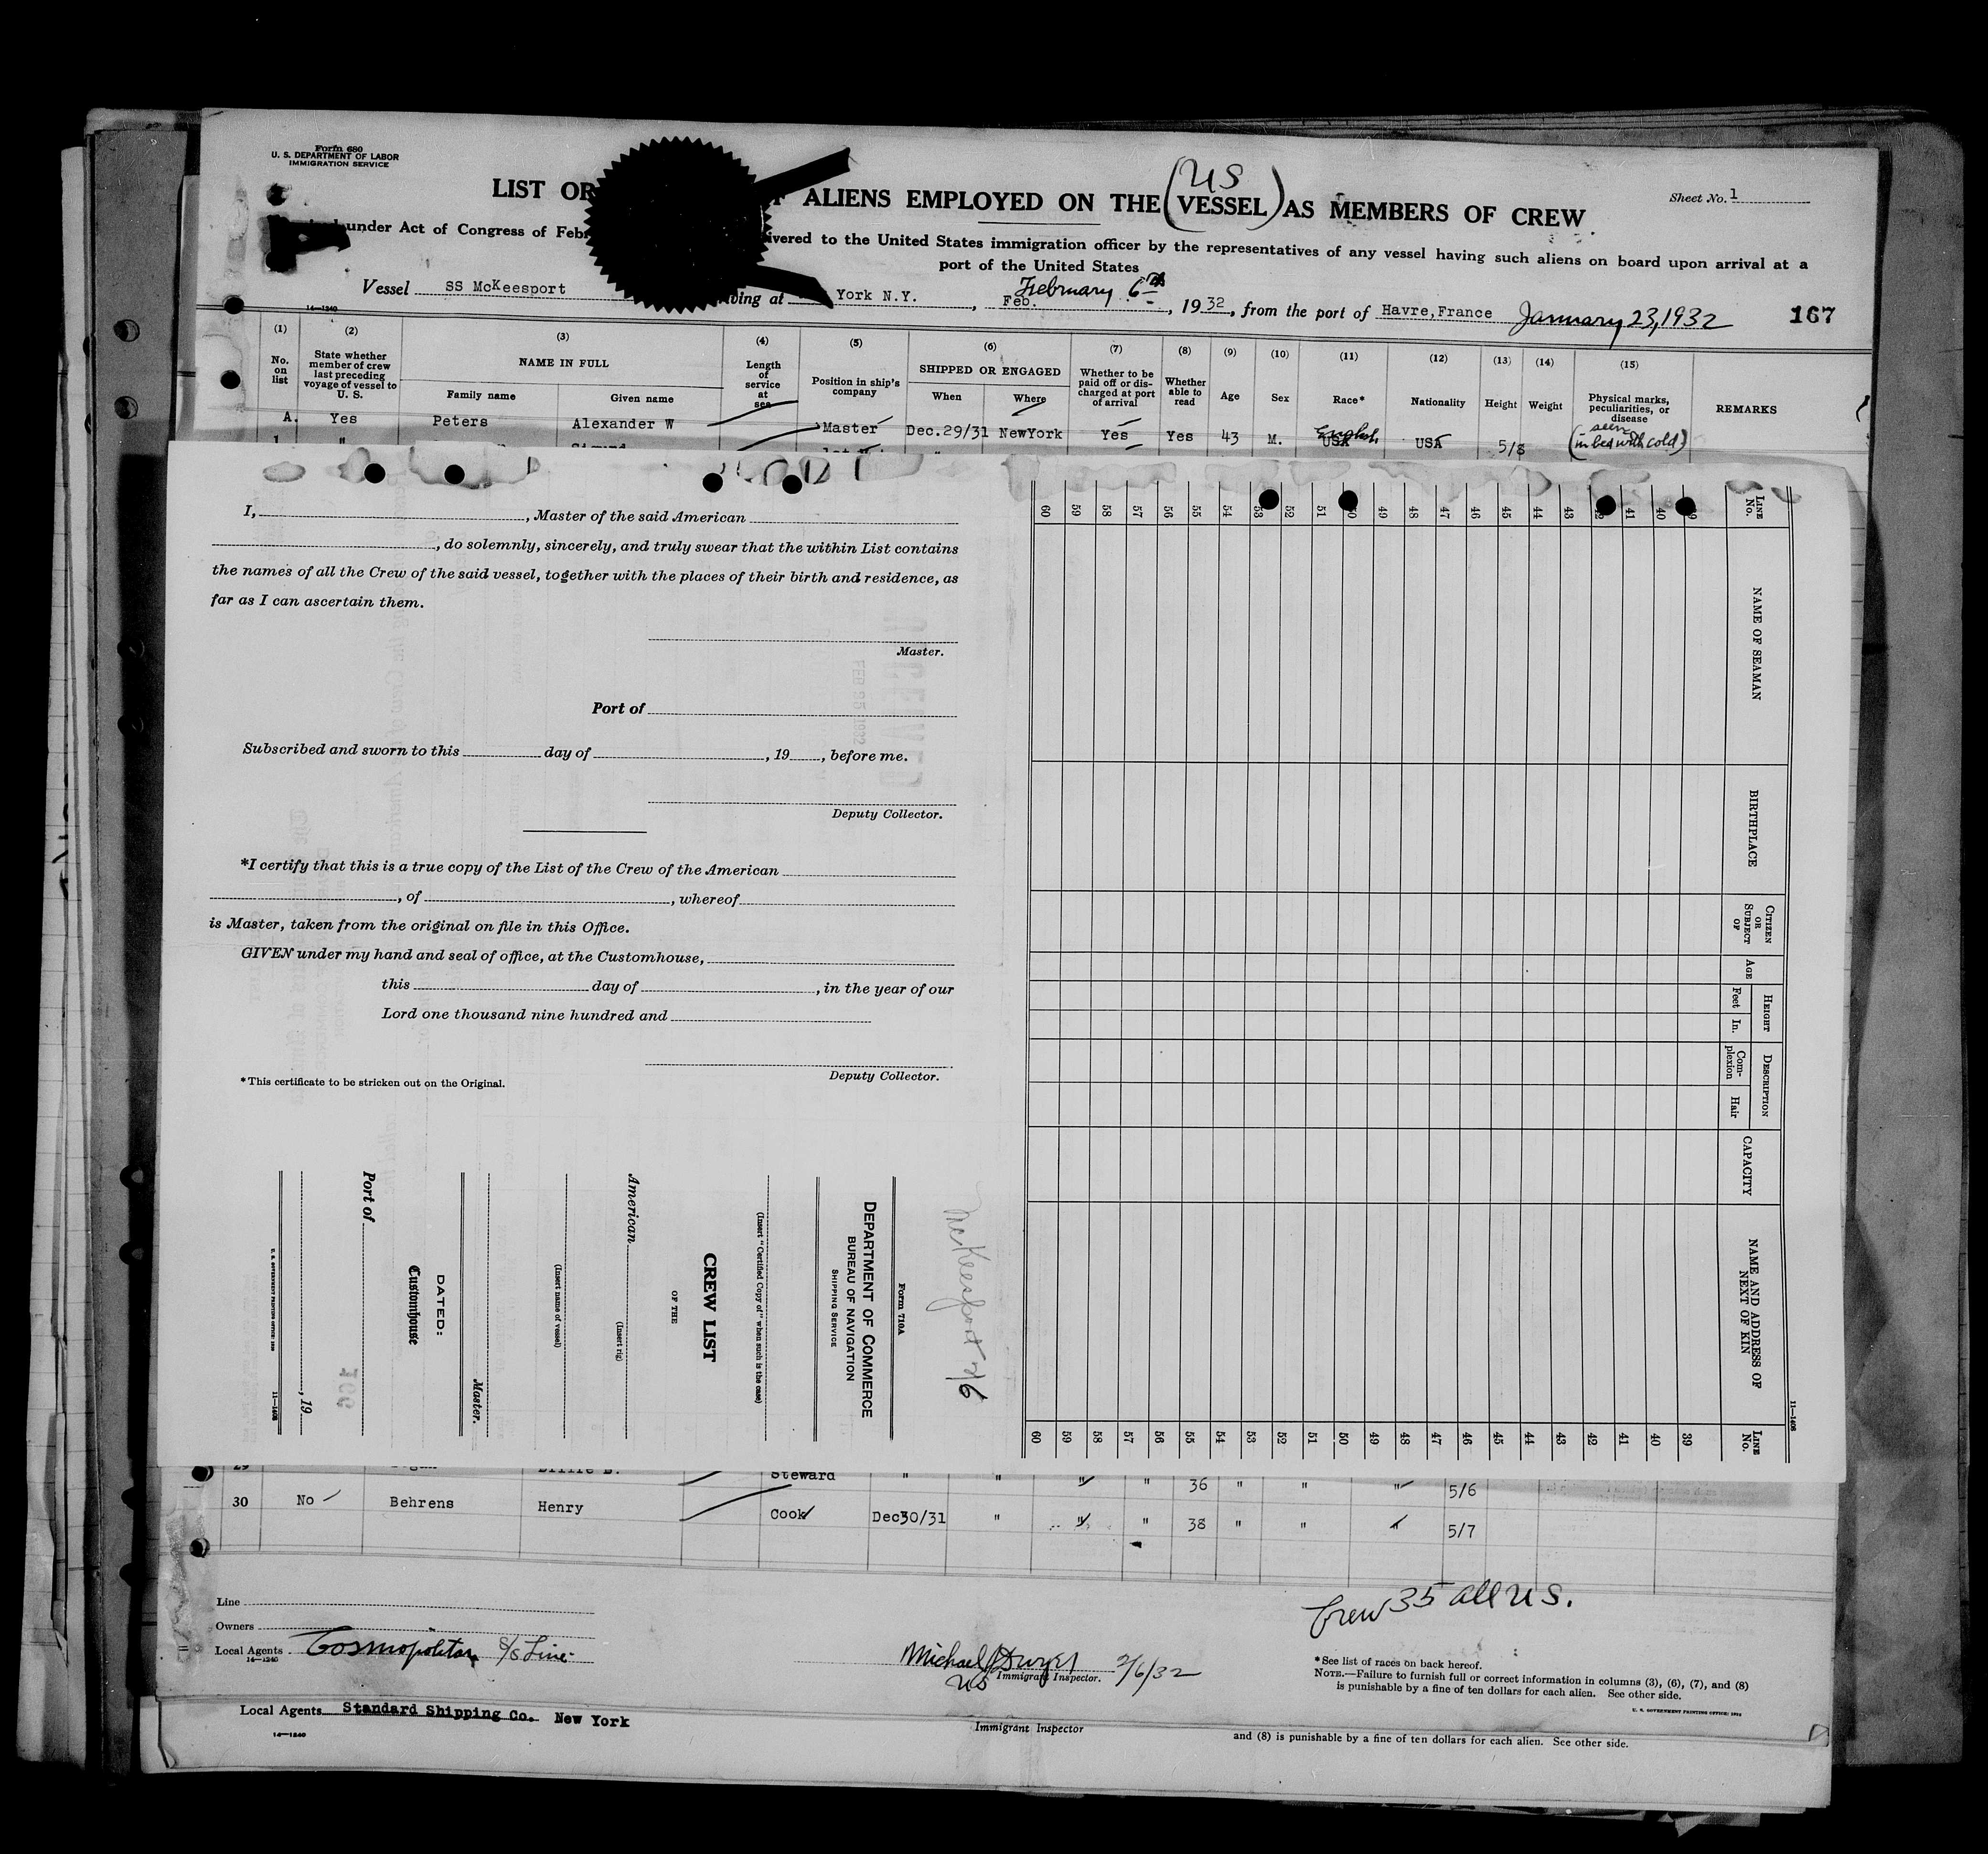 Form 680
U. S. DEPARTMENT OF LABOR
IMMIGRATION SERVICE
LIST OR ALIENS EMPLOYED ON THE (VESSEL) AS MEMBERS OF CREW
US
Sheet No. 1
under Act of Congress of Feb ivered to the United States immigration officer by the representatives of any vessel having such aliens on board upon arrival at a
port of the United States
Vessel SS McKeesport ving at York N.Y., Feb. February 6th, 1932, from the port of Havre,France January 23, 1932 167
14—1240
(1) (2) (3) (4) (5) (6) (7) (8) (9) (10) (11) (12) (13) (14) (15)
No. on list
State whether member of crew last preceding voyage of vessel to U. S.
NAME IN FULL
Family name Given name
Length of service at sea
Position in ship's company
SHIPPED OR ENGAGED
When Where
Whether to be paid off or discharged at port of arrival
Whether able to read
Age
Sex
Race*
Nationality
Height
Weight
Physical marks, peculiarities, or disease
REMARKS
A. Yes Peters Alexander W Master Dec.29/31 NewYork Yes Yes 43 M. USA English USA 5/8 (seen in bed with cold)
1 "
I, , Master of the said American
, do solemnly, sincerely, and truly swear that the within List contains
the names of all the Crew of the said vessel, together with the places of their birth and residence, as
far as I can ascertain them.
Master.
Port of
Subscribed and sworn to this day of , 19 , before me.
Deputy Collector.
*I certify that this is a true copy of the List of the Crew of the American
, of , whereof
is Master, taken from the original on file in this Office.
GIVEN under my hand and seal of office, at the Customhouse,
this day of , in the year of our
Lord one thousand nine hundred and
Deputy Collector.
*This certificate to be stricken out on the Original.
McKeesport 2/6
Form 710A
DEPARTMENT OF COMMERCE
BUREAU OF NAVIGATION
SHIPPING SERVICE
(Insert "Certified Copy of" when such is the case)
CREW LIST
OF THE
American
(Insert rig)
(Insert name of vessel)
Master.
DATED:
Customhouse
Port of
, 19
U. S. GOVERNMENT PRINTING OFFICE 11—1408
LINE No.
NAME OF SEAMAN
BIRTHPLACE
CITIZEN OR SUBJECT OF
AGE
HEIGHT
Feet In.
DESCRIPTION
Complexion Hair
CAPACITY
NAME AND ADDRESS OF NEXT OF KIN
LINE No.
11—1408
60 59 58 57 56 55 54 53 52 51 50 49 48 47 46 45 44 43 42 41 40 39
60 59 58 57 56 55 54 53 52 51 50 49 48 47 46 45 44 43 42 41 40 39
29 Steward " " " " 36 " " " 5/6
30 No Behrens Henry Cook Dec30/31 " " " 38 " " " 5/7
Crew 35 all U S.
Line
Owners
Local Agents Cosmopolitan S/S Line
14—1240
Michael J Dwyer 2/6/32
US Immigrant Inspector.
*See list of races on back hereof.
NOTE.—Failure to furnish full or correct information in columns (3), (6), (7), and (8)
is punishable by a fine of ten dollars for each alien. See other side.
U. S. GOVERNMENT PRINTING OFFICE
Local Agents Standard Shipping Co. New York
14—1240
Immigrant Inspector
and (8) is punishable by a fine of ten dollars for each alien. See other side.